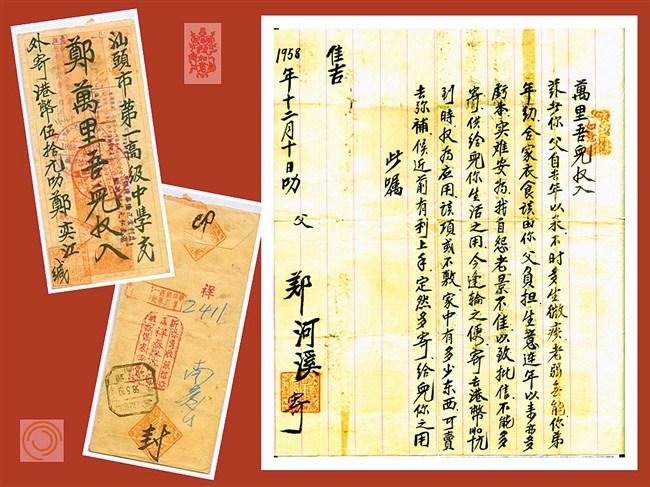 汕頭市第一高級中學交
鄭萬里吾兒收入
外寄港幣伍拾元叻鄭奕江緘
印
祥
2411
封
萬里吾兒收入
你父自去年以來不时多生微疾老弱無能你弟
年幼合家衣食該由你父負担生意連年以来亦多
虧本实难安为我自怨老景不佳以致批信不能多
寄供给兒你生活之用今逢輪之便寄去港幣50元
到時收为应用該項或不敷家中有多少东西可賣
去弥補候近前有利上手定然多寄给兒你之用
此嘱
佳吉
1958年十二月十日叻 父 郑河溪 寄